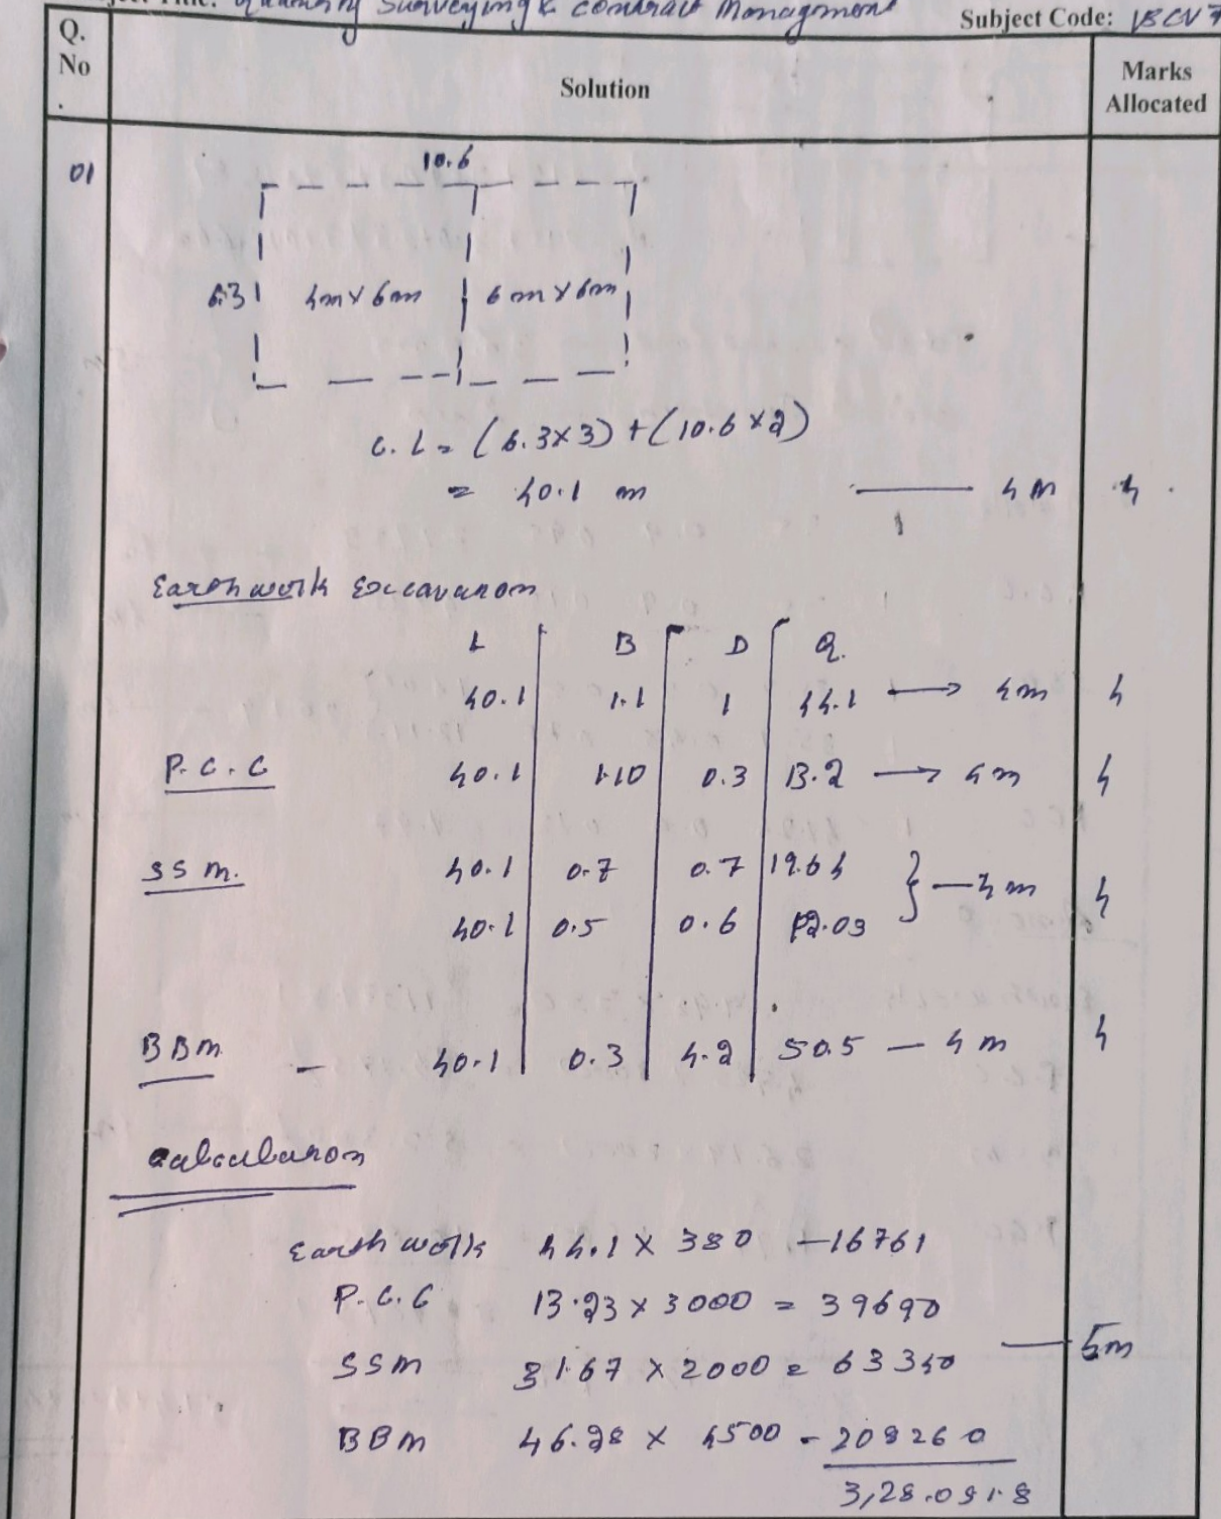 Surveying & contract Management
Subject Code:
Q. No
Solution
Marks Allocated
01
10.6
6.3 4m x 6m 6m x 6m
C.L = (6.3x3) + (10.6 x2)
= 40.1 m — 4m 4
Earthwork Excavanon
L B D Q.
40.1 1.1 1 44.1 → 4m 4
P.C.C 40.1 1.10 0.3 13.2 → 4m 4
SSm. 40.1 0.7 0.7 19.64 } — 4m 4
40.1 0.5 0.6 12.03
BBm – 40.1 0.3 4.2 50.5 — 4m 4
Calculanon
Earth work 44.1 x 380 – 16761
P.C.C 13.23 x 3000 = 39690
SSm 31.67 x 2000 = 63340 — 5m
BBm 46.28 x 4500 = 208260
3,28.051.8